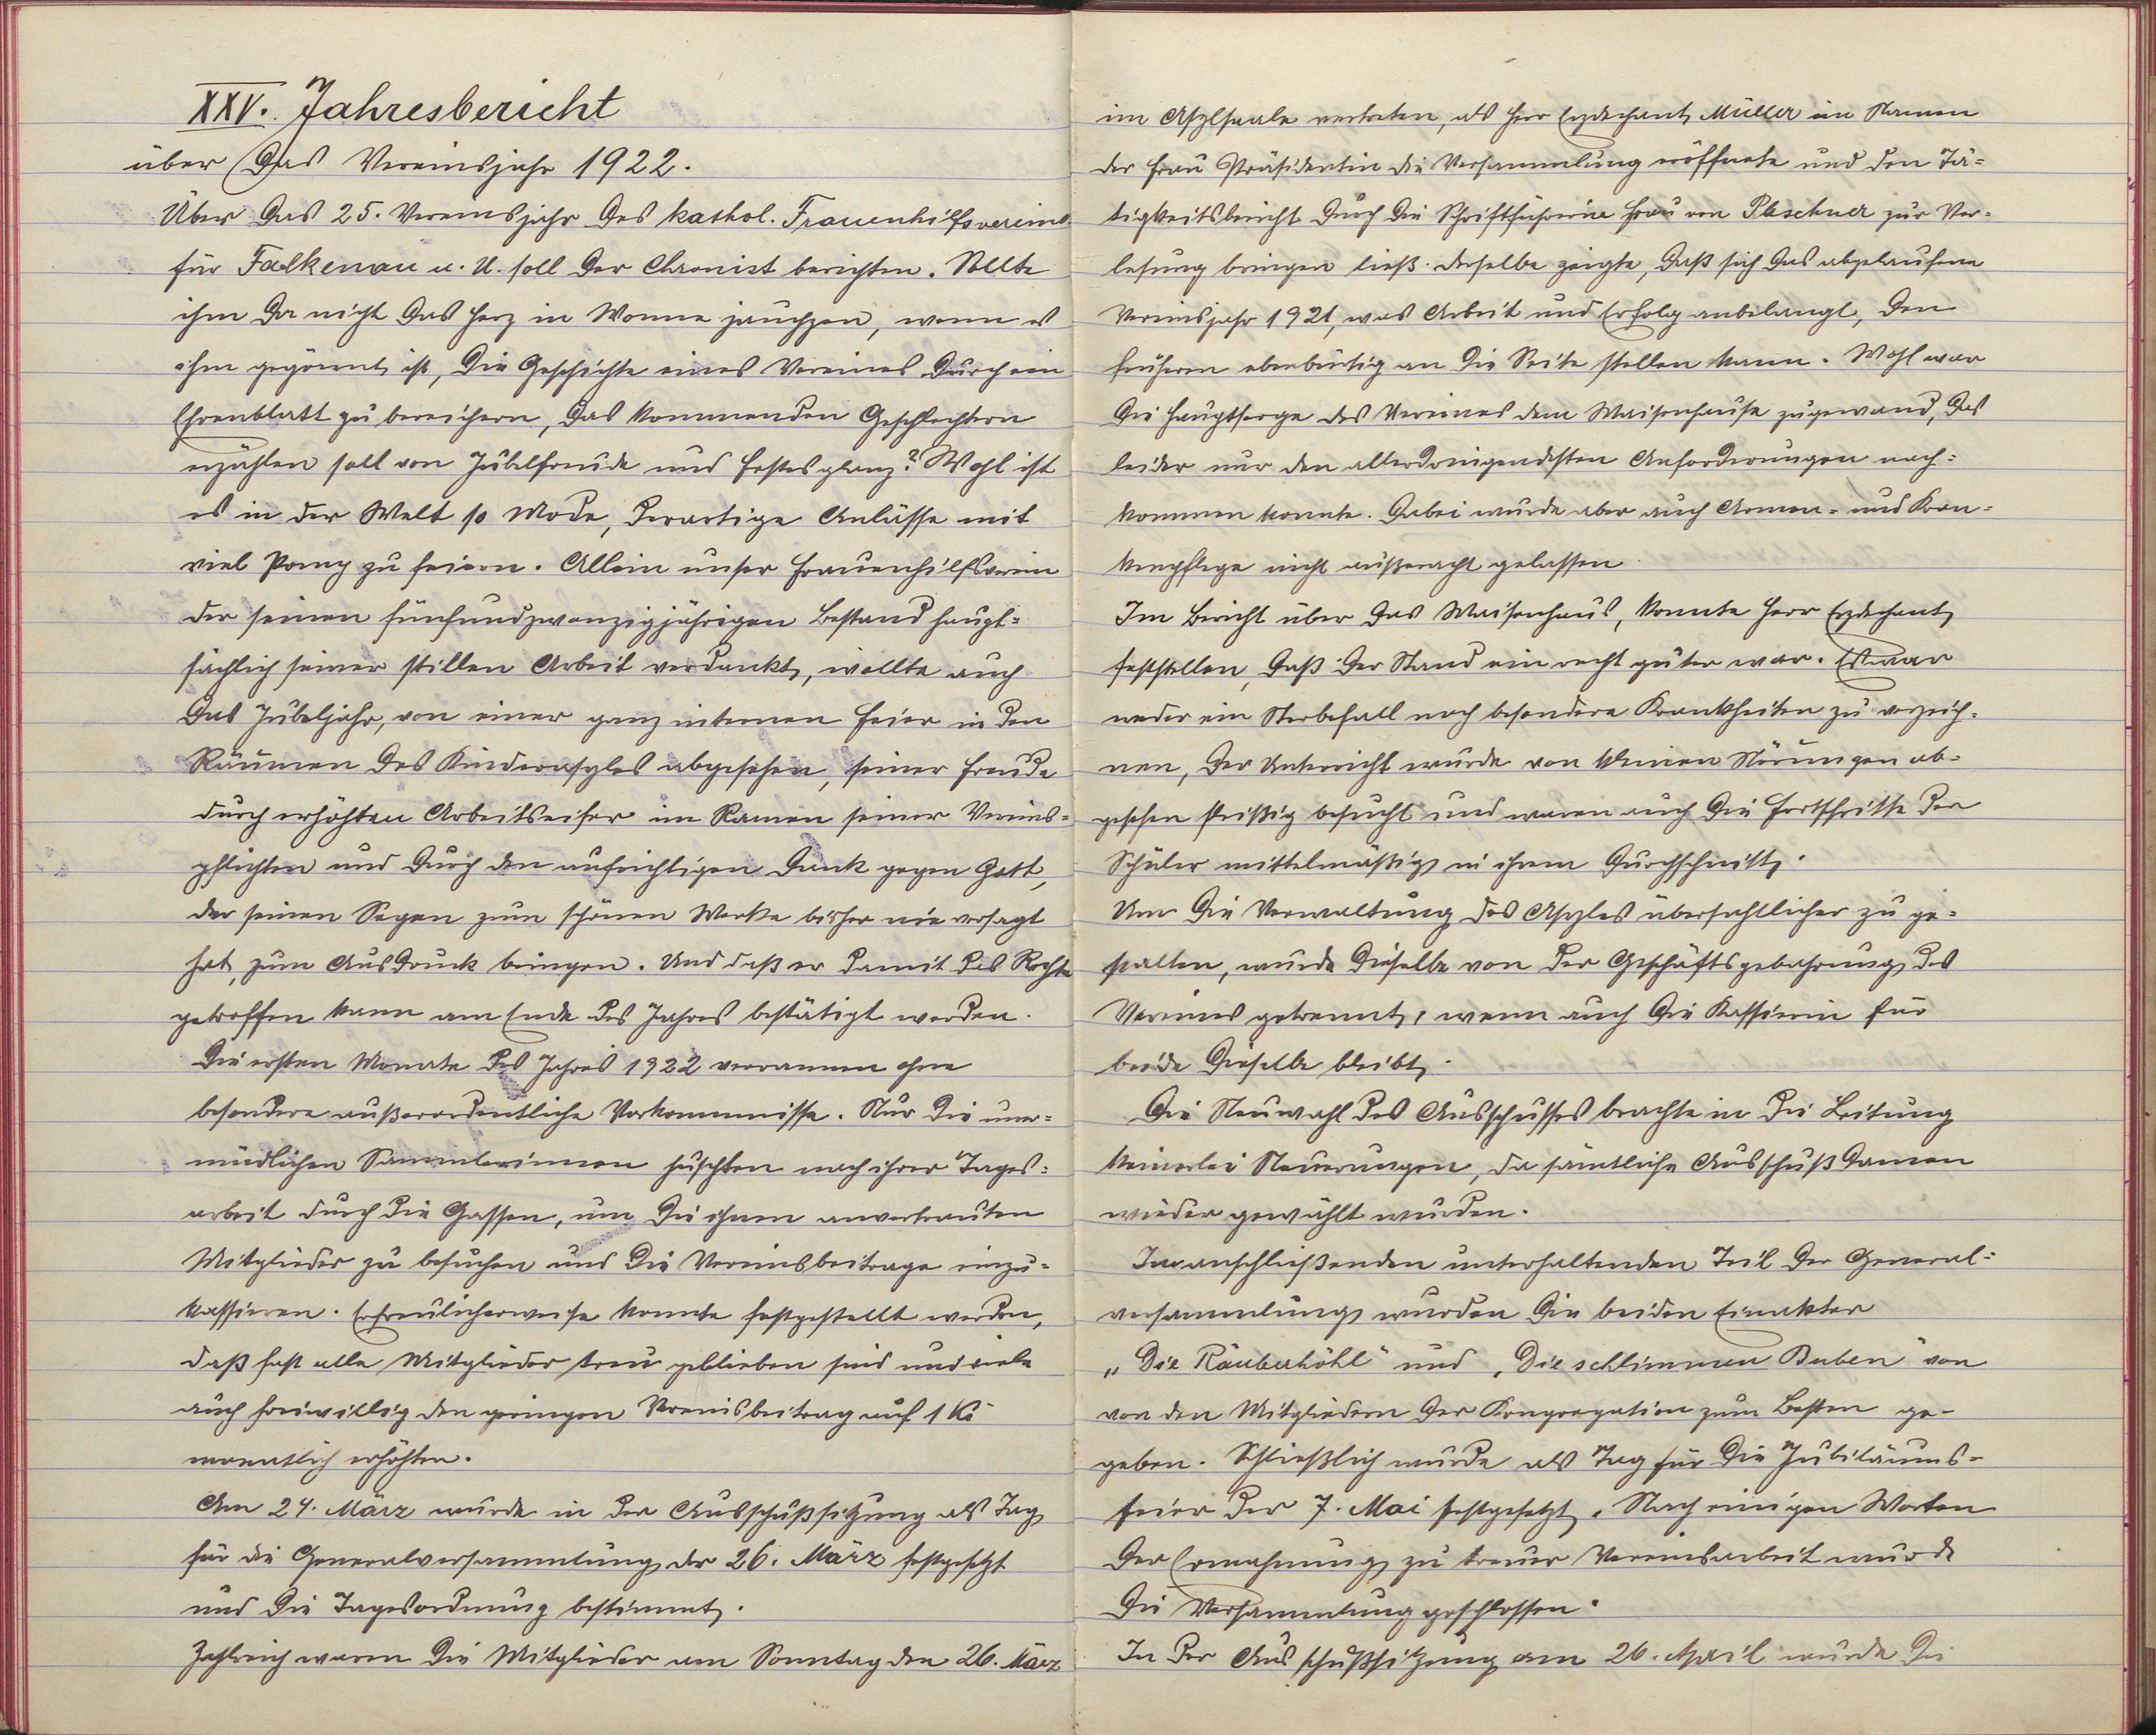 XXV. Jahresbericht
über das Vereinsjahr 1922.
Über das 25. Vereinsjahr des kathol. Frauenhilfsvereins
für Falkenau u. U. soll der Chronist berichten. Sollte
ihm da nicht das Herz in Wonne jauchzen, wenn es
ihm gegönnt ist, die Geschichte eines Vereines durch ein
Ehrenblatt zu bereichern, das kommenden Geschlechtern
erzählen soll von Jubelfreude und Festesglanz? Wohl ist
es in der Welt so Mode, derartige Anlässe mit
viel Pomp zu feiern. Allein unser Frauenhilfsverein
der seinen fünfundzwanzigjährigen Bestand haupt-
sächlich seiner stillen Arbeit verdankt, wollte auch
das Jubeljahr, von einer ganz internen Feier in den
Räumen des Kinderasyles abgesehen, seiner Freude
durch erhöhten Arbeitseifer im Ramen seiner Vereins-
pflichten und durch den aufrichtigen Dank gegen Gott,
der seinen Segen zum schönen Werke bisher nie versagt
hat, zum Ausdruck bringen. Und daß er damit das Rechte
getroffen kann am Ende des Jahres bestätigt werden.
Die ersten Monate des Jahres 1922 verrannen ohne
besondere außerordentliche Vorkommnisse. Nur die uner-
müdlichen Sammlerinnen huschten nach ihrer Tages-
arbeit durch die Gassen, um die ihnen anvertrauten
Mitglieder zu besuchen und die Vereinsbeitrage einzu-
kassieren. Erfreulicherweise konnte festgestellt werden,
daß fast alle Mitglieder treu geblieben sind und viele
auch freiwillig den geringen Vereinsbeitrag auf 1 Kč
monatlich erhöhten.
Am 24. März wurde in der Ausschußsitzung als Tag
für die Generalversammlung der 26. März festgesetzt
und die Tagesordnung bestimmt.
Zahlreich waren die Mitglieder am Sonntag den 26. März
im Asylsaale vertreten, als Herr Erzdechant Müller im Namen
der Frau Präsidentin die Versammlung eröffnete und den Tä-
tigkeitsbericht durch die Schriftführerin Frau von Plaschner zur Ver-
lesung bringen ließ. Derselbe zeigte, daß sich das abgelaufene
Vereinsjahr 1921, was Arbeit und Erfolg anbelangt, den
früheren ebenbürtig an die Seite stellen kann. Wohl war
die Hauptsorge des Vereines dem Waisenhause zugewand, das
leider nur den allerdringendsten Anforderungen nach-
kommen konnte. Dabei wurde aber auch Armen- und Kran-
kenpflege nicht außeracht gelassen.
Im Bericht über das Waisenhaus, konnte Herr Erzdechant
feststellen, daß der Stand ein recht guter war. Es war
weder ein Sterbefall noch besondere Krankheiten zu verzeich-
nen, der Unterricht wurde von kleinen Störungen ab-
gesehen fleißig besucht und waren auch die Fortschritte der
Schüler mittelmäßig in ihrem Durchschnitt.
Um die Verwaltung des Asyles übersichtlicher zu ge-
stalten, wurde dieselbe von der Geschäftsgebahrung des
Vereines getrennt, wenn auch die Kassierin für
beide dieselbe bleibt.
Die Neuwahl des Ausschusses brachte in die Leitung
keinerlei Neuerungen, da sämtliche Ausschußdamen
wieder gewählt wurden.
Im anschließenden unterhaltenden Teil der General-
versammlung wurden die beiden Einakter
„Die Räuberhöhl" und „Die schlimmen Buben" von
von den Mitgliedern der Kongregation zum Besten ge-
geben. Schließlich wurde als Tag für die Jubiläums-
feier der 7. Mai festgesetzt. Nach einigen Worten
der Ermahnung zu treuer Vereinsarbeit wurde
die Versammlung geschlossen.
In der Ausschußsitzung am 26. April wurde die